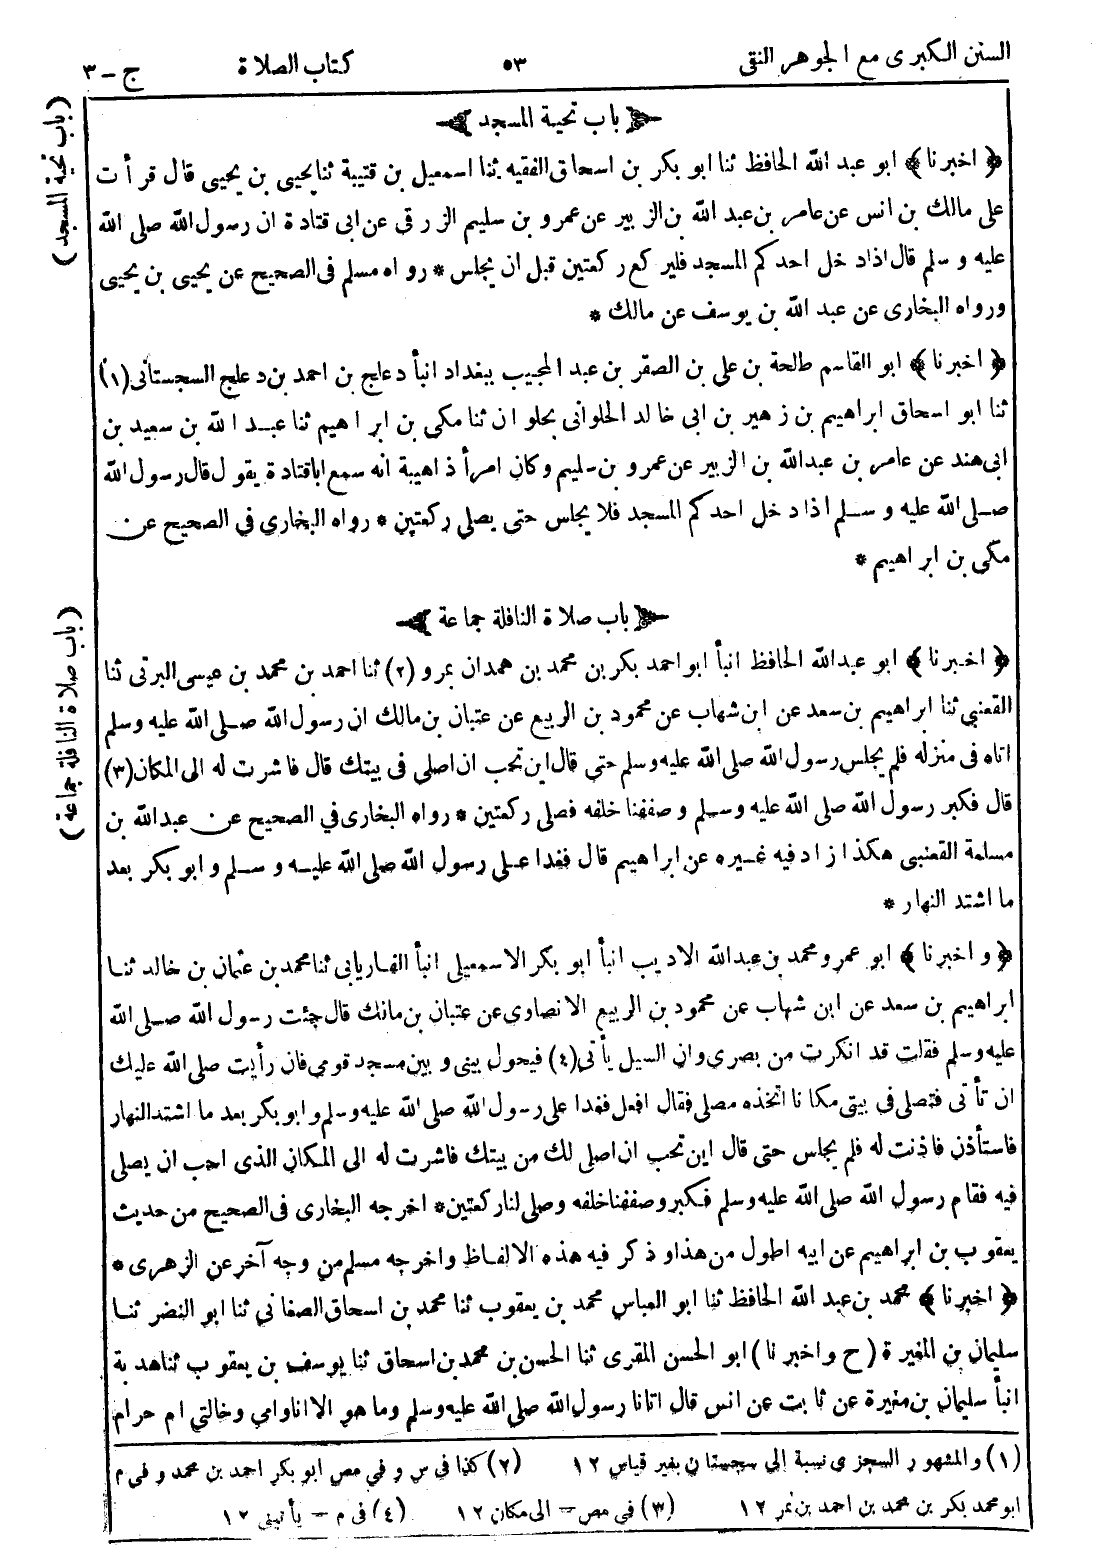 السنن الكبرى مع الجوهر النقى
٥٣
كتاب الصلاة
ج – ٣
(باب تحية المسجد)
باب تحية المسجد
﴿ اخبرنا ﴾ ابو عبد الله الحافظ ثنا ابو بكر بن اسحاق الفقيه ثنا اسمعيل بن قتيبة ثنا يحيى بن يحيى قال قرأت
على مالك بن انس عن عامر بن عبد الله بن الزبير عن عمرو بن سليم الزرقى عن ابى قتادة ان رسول الله صلى الله
عليه وسلم قال اذا دخل احدكم المسجد فليركع ركعتين قبل ان يجلس * رواه مسلم فى الصحيح عن يحيى بن يحيى
ورواه البخارى عن عبد الله بن يوسف عن مالك *
﴿ اخبرنا ﴾ ابو القاسم طلحة بن على بن الصقر بن عبد المجيب ببغداد انبأ دعلج بن احمد بن دعلج السجستانى (١)
ثنا ابو اسحاق ابراهيم بن زهير بن ابى خالد الحلوانى بحلوان ثنا مكى بن ابراهيم ثنا عبد الله بن سعيد بن
ابى هند عن عامر بن عبدالله بن الزبير عن عمرو بن سليم وكان امرأ ذاهيبة انه سمع اباقتادة يقول قال رسول الله
صلى الله عليه وسلم اذا دخل احدكم المسجد فلا يجلس حتى يصلى ركعتين * رواه البخاري في الصحيح عن
مكى بن ابراهيم *
(باب صلاة النافلة جماعة)
باب صلاة النافلة جماعة
﴿ اخبرنا ﴾ ابو عبدالله الحافظ انبأ ابو احمد بكر بن محمد بن همدان بمرو (٢) ثنا احمد بن محمد بن عيسى البرتى ثنا
القعنبي ثنا ابراهيم بن سعد عن ابن شهاب عن محمود بن الربيع عن عتبان بن مالك ان رسول الله صلى الله عليه وسلم
اتاه فى منزله فلم يجلس رسول الله صلى الله عليه وسلم حتى قال اين تحب ان اصلى فى بيتك قال فاشرت له الى المكان (٣)
قال فكبر رسول الله صلى الله عليه وسلم وصففنا خلفه فصلى ركعتين * رواه البخارى في الصحيح عن عبدالله بن
مسلمة القعنبى هكذا زاد فيه غيره عن ابراهيم قال فغدا على رسول الله صلى الله عليه وسلم وابو بكر بعد
ما اشتد النهار *
﴿ و اخبرنا ﴾ ابو عمرو محمد بن عبدالله الاديب انبأ ابو بكر الاسمعيلى انبأ الفاريابى ثنا محمد بن عثمان بن خالد ثنا
ابراهيم بن سعد عن ابن شهاب عن محمود بن الربيع الانصاوى عن عتبان بن مالك قال جئت رسول الله صلى الله
عليه وسلم فقلت قد انكرت من بصرى وان السيل يأتى (٤) فيحول بينى وبين مسجد قومى فان رأيت صلى الله عليك
ان تأتى فتصلى فى بيتى مكانا اتخذه مصلى فقال افعل فغدا على رسول الله صلى الله عليه وسلم وابو بكر بعد ما اشتد النهار
فاستأذن فاذنت له فلم يجلس حتى قال اين تحب ان اصلى لك من بيتك فاشرت له الى المكان الذى احب ان يصلى
فيه فقام رسول الله صلى الله عليه وسلم فكبر وصففنا خلفه وصلى لنا ركعتين * اخرجه البخارى فى الصحيح من حديث
يعقوب بن ابراهيم عن ابيه اطول من هذا وذكر فيه هذه الالفاظ واخرجه مسلم من وجه آخر عن الزهرى *
﴿ اخبرنا ﴾ محمد بن عبد الله الحافظ ثنا ابو العباس محمد بن يعقوب ثنا محمد بن اسحاق الصغانى ثنا ابو النضر ثنا
سليمان بن المغيرة (ح واخبرنا) ابو الحسن المقرى ثنا الحسن بن محمد بن اسحاق ثنا يوسف بن يعقوب ثنا هدبة
انبأ سليمان بن مغيرة عن ثابت عن انس قال اتانا رسول الله صلى الله عليه وسلم وما هو الا انا وامي وخالتي ام حرام
(١) والمشهور السجزى نسبة الي سجستان بغير قياس ١٢ (٢) كذا في س و في مص ابو بكر احمد بن محمد و فى م
ابو محمد بكر بن محمد بن احمد بن نمر ١٢ (٣) فى مص – الى مكان ١٢ (٤) فى م – يأتينى ١٢